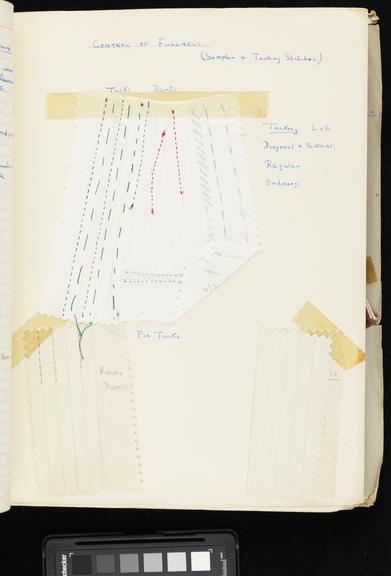 CONTROL OF FULLNESS.
(Sampler + Tacking Stitches.)
Tucks Darts.
Tacking L→R.
Diagonal + Vertical
Regular
Ordinary.
Pin Tucks.
Knife
Pleats.